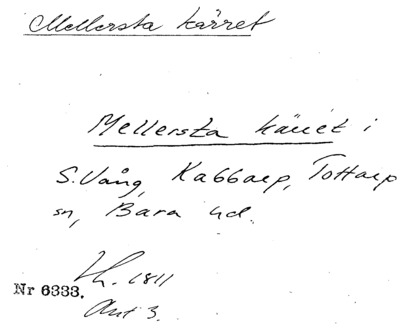 Mellersta kärret
Mellersta kärret i
S. Vång, Kabbarp, Tottarp
sn, Bara hd.
Lh. 1811
Nr 6333.
Akt 3.